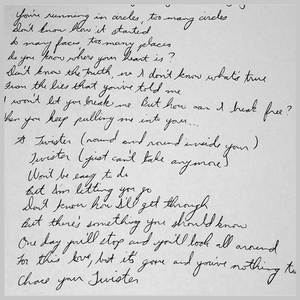 You're running in circles, too many circles
Don't know how it started
So many faces, too many places
Do you know where your heart is?
Don't know the truth, no I don't know what's true
From the lies that you've told me
I won't let you break me. But how can I break free?
When you keep pulling me into your...
Twister (round and round inside your)
Twister (just can't take anymore)
Won't be easy to do
But I'm letting you go
Don't know how I'll get through
But there's something you should know
One day you'll stop and you'll look all around
For this love, but it's gone and you've nothing to
Chase your Twister